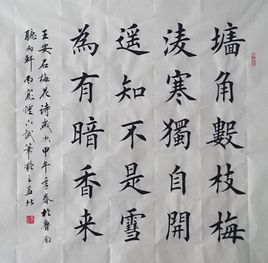 墻角數枝梅
淩寒獨自開
遥知不是雪
為有暗香来
王安石梅花诗歲次甲午季春於魯南
聽雨軒南窗